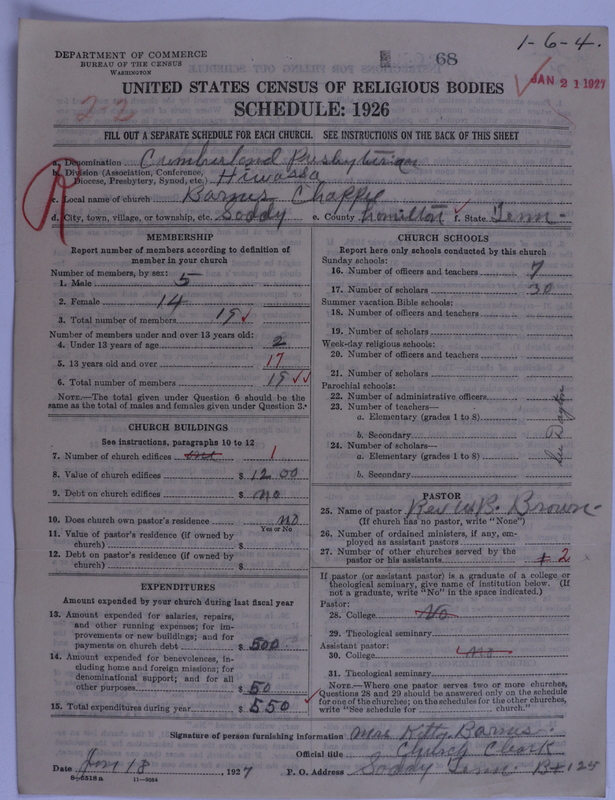 1-6-4.
DEPARTMENT OF COMMERCE
BUREAU OF THE CENSUS
WASHINGTON
68
JAN 21 1927
UNITED STATES CENSUS OF RELIGIOUS BODIES
SCHEDULE: 1926
22
FILL OUT A SEPARATE SCHEDULE FOR EACH CHURCH. SEE INSTRUCTIONS ON THE BACK OF THIS SHEET
a. Denomination Cumberland Presbyterian
b. Division (Association, Conference, Diocese, Presbytery, Synod, etc.) Hiwassa
c. Local name of church Barnes Chappel
d. City, town, village, or township, etc. Soddy e. County Hamilton f. State Tenn-
MEMBERSHIP
Report number of members according to definition of
member in your church
Number of members, by sex:
1. Male 5
2. Female 14
3. Total number of members 19
Number of members under and over 13 years old:
4. Under 13 years of age 2
5. 13 years old and over 17
6. Total number of members 19
NOTE.—The total given under Question 6 should be the
same as the total of males and females given under Question 3.
CHURCH BUILDINGS
See instructions, paragraphs 10 to 12
7. Number of church edifices one 1
8. Value of church edifices $ 1200
9. Debt on church edifices $ no
10. Does church own pastor's residence no
Yes or No
11. Value of pastor's residence (if owned by
church) $
12. Debt on pastor's residence (if owned by
church) $
EXPENDITURES
Amount expended by your church during last fiscal year
13. Amount expended for salaries, repairs,
and other running expenses; for im-
provements or new buildings; and for
payments on church debt $ 500
14. Amount expended for benevolences, in-
cluding home and foreign missions; for
denominational support; and for all
other purposes $ 50
15. Total expenditures during year $ 550
CHURCH SCHOOLS
Report here only schools conducted by this church
Sunday schools:
16. Number of officers and teachers 7
17. Number of scholars 30
Summer vacation Bible schools:
18. Number of officers and teachers
19. Number of scholars
Week-day religious schools:
20. Number of officers and teachers
21. Number of scholars
Parochial schools:
22. Number of administrative officers
23. Number of teachers—
a. Elementary (grades 1 to 8)
b. Secondary
24. Number of scholars—
a. Elementary (grades 1 to 8)
b. Secondary
See Dayton
PASTOR
25. Name of pastor Rev W.B. Brown-
(If church has no pastor, write "None")
26. Number of ordained ministers, if any, em-
ployed as assistant pastors
27. Number of other churches served by the
pastor or his assistants 2
If pastor (or assistant pastor) is a graduate of a college or
theological seminary, give name of institution below. (If
not a graduate, write "No" in the space indicated.)
Pastor:
28. College No
29. Theological seminary
Assistant pastor:
30. College no
31. Theological seminary
NOTE.—Where one pastor serves two or more churches,
Questions 28 and 29 should be answered only on the schedule
for one of the churches; on the schedules for the other churches,
write "See schedule for church."
Signature of person furnishing information Mrs Kitty Barnes
Official title Church Clerk
Date Jan 18, 1927 P. O. Address Soddy Tenn. Bx 125
8-5318a 11-9084